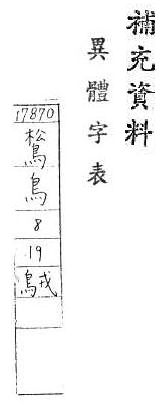 補充資料
異體字表
17870
鳥
8
19